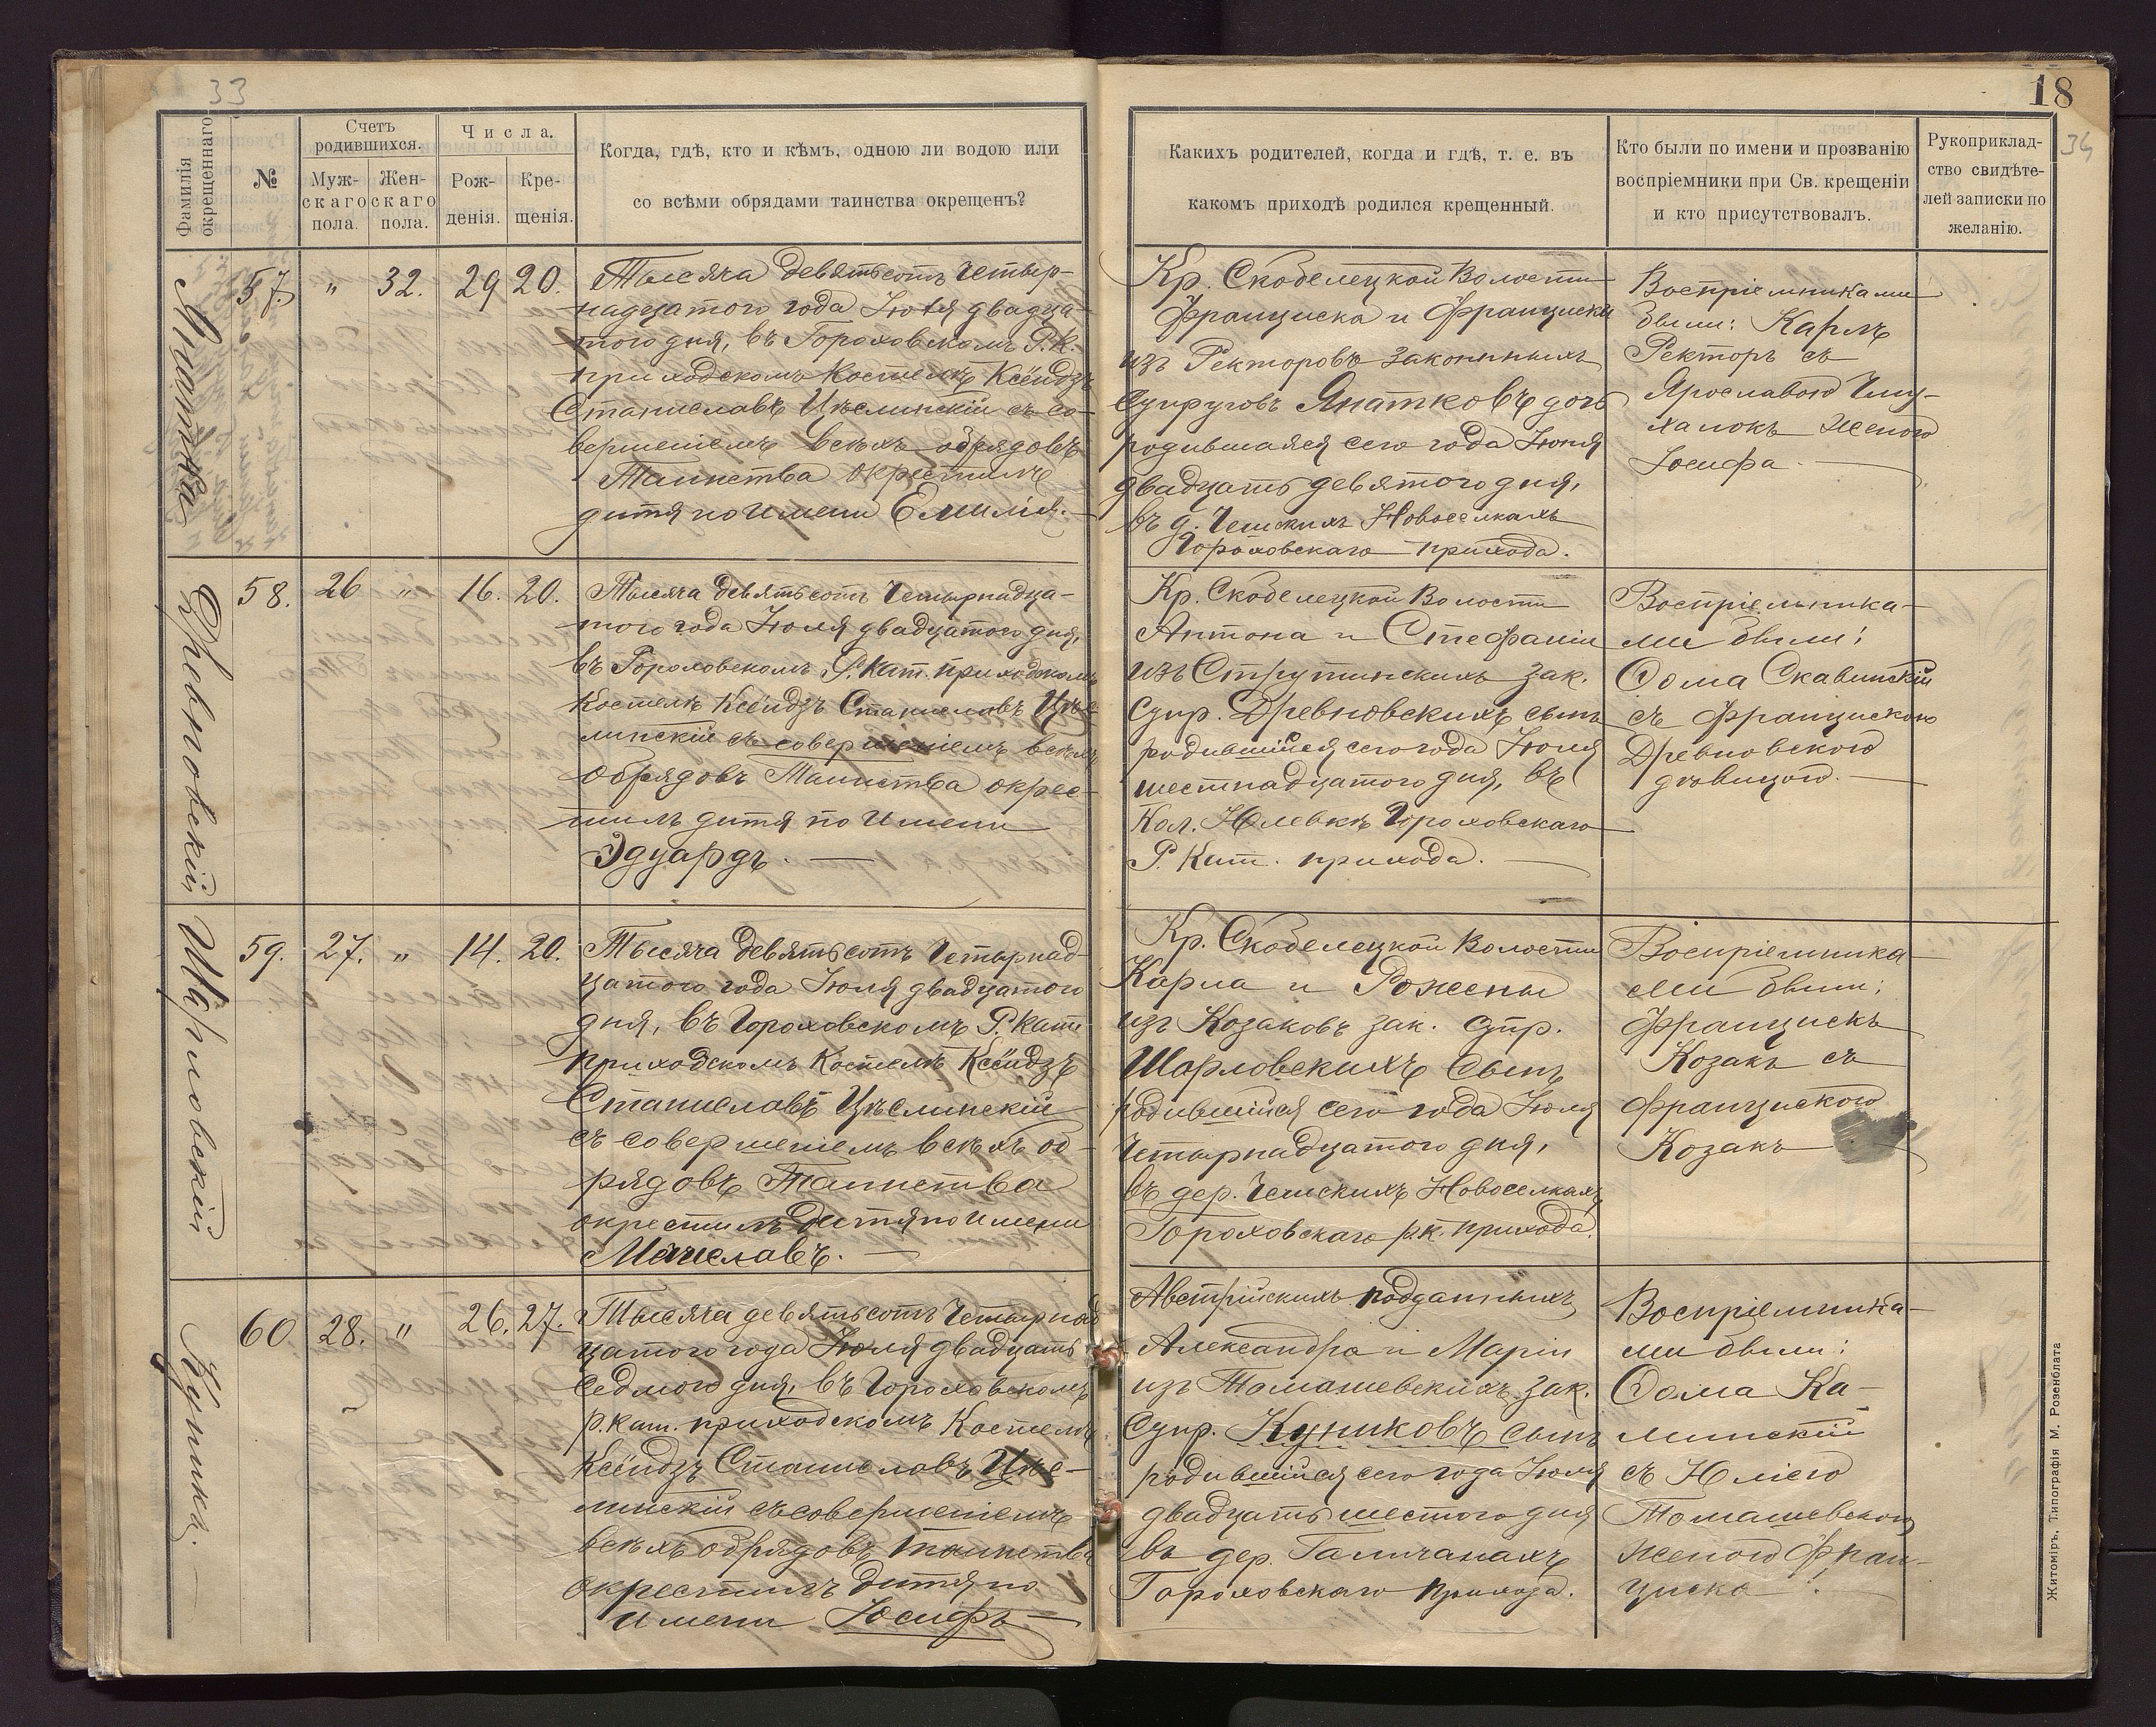 33
18
34
Фамилія
окрещеннаго
№
Счетъ
родившихся.
Муж-
скаго
пола.
Жен-
скаго
пола.
Числа.
Рож-
денія.
Кре-
щенія.
Когда, гдѣ, кто и кѣмъ, одною ли водою или
со всѣми обрядами таинства окрещенъ?
Какихъ родителей, когда и гдѣ, т. е. въ
какомъ приходѣ родился крещенный.
Кто были по имени и прозванію
воспріемники при Св. крещеніи
и кто присутствовалъ.
Рукоприклад-
ство свидѣте-
лей записки по
желанію.
57. " 32. 29 20.
Тысяча девятьсотъ четыр-
надцатого года Іюля двадца-
того дня, въ Гороховскомъ Р.К.
приходскомъ Костелѣ Ксёндзъ
Станиславъ Цѣслинскій съ со-
вершеніемъ всѣхъ обрядовъ
Таинства окрестилъ
дитя по имени Емилія.
Кр. Скобелецкой Волости
Франциска и Франциски
изъ Ректоровъ законныхъ
супруговъ Янатковъ дочь
родившаяся сего года Іюня
двадцать девятого дня,
въ д. Чешскихъ Новоселкахъ
Гороховскаго прихода.
Воспріемниками
были: Карлъ
Ректоръ съ
Ярославою
женою
Іосифа.
Древновскій
58. 26 " 16. 20.
Тысяча девятьсотъ четырнадца-
того года Іюля двадцатого дня,
въ Гороховскомъ Р. Кат. приходскомъ
Костелѣ Ксёндзъ Станиславъ Цѣс-
линскій съ совершеніемъ всѣхъ
обрядовъ Таинства окрес-
тилъ дитя по имени
Эдуардъ.
Кр. Скобелецкой Волости
Антона и Стефаніи
изъ Струтинскихъ зак.
супр. Древновскихъ сынъ
родившійся сего года Іюля
шестнадцатого дня, въ
Кол. Юлевкѣ Гороховскаго
Р. Кат. прихода.
Воспріемника-
ми были:
Ѳома Скавинскій
съ Францискою
Древновскою
дѣвицою.
Шарловскій
59. 27. " 14. 20.
Тысяча девятьсотъ четырнад-
цатого года Іюля двадцатого
дня, въ Гороховскомъ Р. Кат.
приходскомъ Костелѣ Ксёндзъ
Станиславъ Цѣслинскій
съ совершеніемъ всѣхъ об-
рядовъ Таинства
окрестилъ дитя по имени
Мечиславъ.
Кр. Скобелецкой Волости
Карла и
изъ Козаковъ зак. супр.
Шарловскихъ сынъ
родившійся сего года Іюля
четырнадцатого дня,
въ дер. Чешскихъ Новоселкахъ
Гороховскаго р.к. прихода.
Воспріемника-
ми были:
Францискъ
Козакъ съ
Францискою
Козакъ
Куника.
60 28. " 26. 27.
Тысяча девятьсотъ четырнад-
цатого года Іюля двадцать
седмого дня, въ Гороховскомъ
р. кат. приходскомъ Костелѣ
Ксёндзъ Станиславъ Цѣс-
линскій съ совершеніемъ
всѣхъ обрядовъ таинства
окрестилъ дитя по
имени Іосифъ
Австрійскихъ подданныхъ
Александра и Маріи
изъ Томашевскихъ зак.
супр. Куниковъ сынъ
родившійся сего года Іюля
двадцать шестого дня
въ дер. Галичанахъ
Гороховскаго прихода.
Воспріемника-
ми были:
Ѳома Ка-
минскій
съ Юліею
Томашевскою
женою Фран-
циска.
Житоміръ, Типографія М. Розенблата